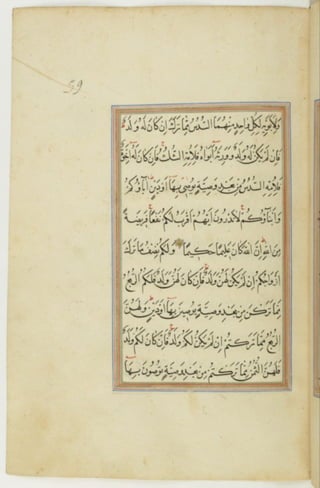 59
وَلِأَبَوَيْهِ لِكُلِّ وَاحِدٍ مِنْهُمَا السُّدُسُ مِمَّا تَرَكَ اِنْ كَانَ لَهُ وَلَدٌ
فَاِنْ لَمْ يَكُنْ لَهُ وَلَدٌ وَوَرِثَهُ اَبَوَاهُ فَلِاُمِّهِ الثُّلُثُ فَاِنْ كَانَ لَهُ اِخْوَةٌ
فَلِاُمِّهِ السُّدُسُ مِنْ بَعْدِ وَصِيَّةٍ يُوصِى بِهَا اَوْ دَيْنٍ اٰبَاؤُكُمْ
وَاَبْنَاؤُكُمْ لَا تَدْرُونَ اَيُّهُمْ اَقْرَبُ لَكُمْ نَفْعًا فَرِيضَةً
مِنَ اللهِ اِنَّ اللهَ كَانَ عَلِيمًا حَكِيمًا وَلَكُمْ نِصْفُ مَا تَرَكَ
اَزْوَاجُكُمْ اِنْ لَمْ يَكُنْ لَهُنَّ وَلَدٌ فَاِنْ كَانَ لَهُنَّ وَلَدٌ فَلَكُمُ الرُّبُعُ
مِمَّا تَرَكْنَ مِنْ بَعْدِ وَصِيَّةٍ يُوصِينَ بِهَا اَوْ دَيْنٍ وَلَهُنَّ
الرُّبُعُ مِمَّا تَرَكْتُمْ اِنْ لَمْ يَكُنْ لَكُمْ وَلَدٌ فَاِنْ كَانَ لَكُمْ وَلَدٌ
فَلَهُنَّ الثُّمُنُ مِمَّا تَرَكْتُمْ مِنْ بَعْدِ وَصِيَّةٍ تُوصُونَ بِهَا